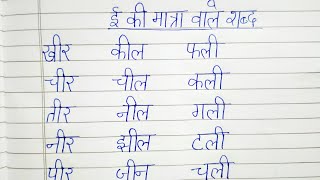 ई की मात्रा वाले शब्द
खीर कील फली
चीर चील कली
तीर नील गली
नीर झील टली
पीर जीन चली